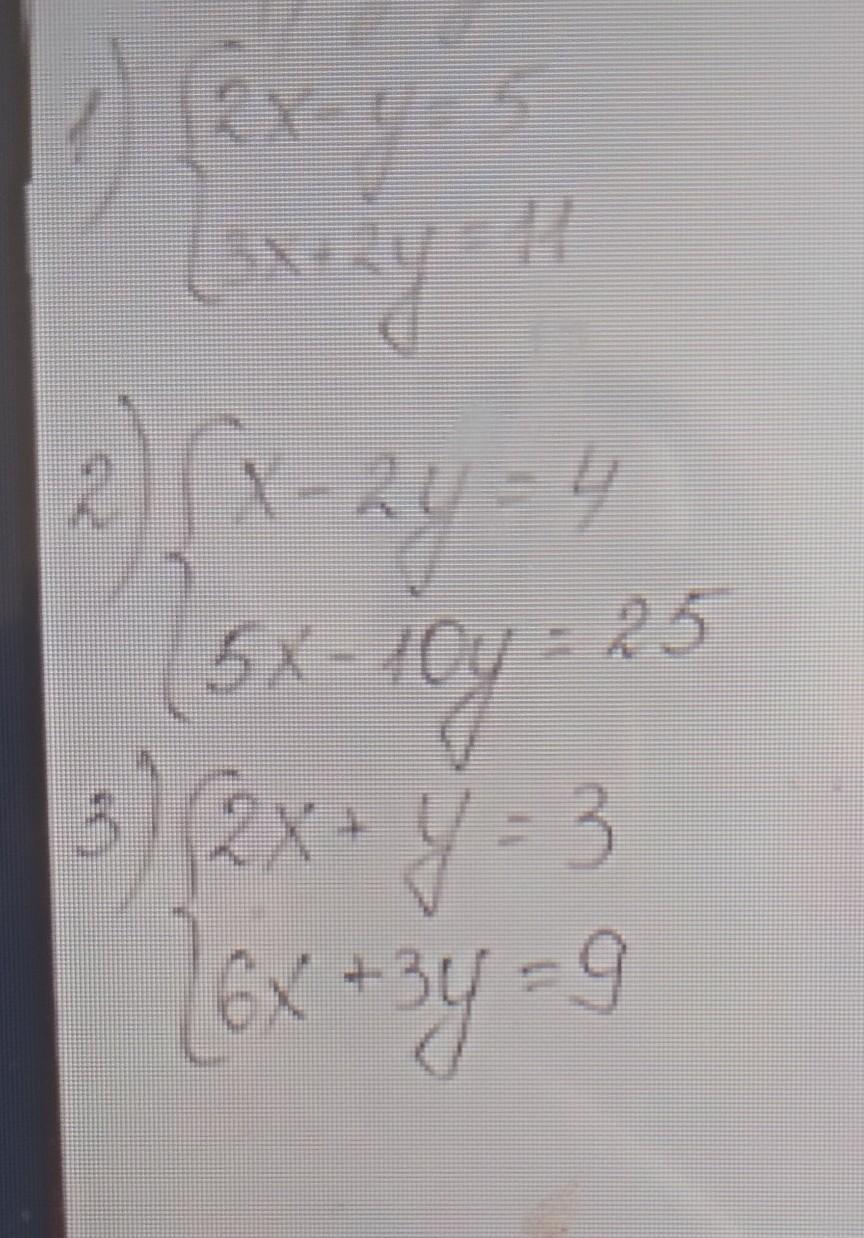 1) { 2x - y = 5
3x + 2y = 11
2) { x - 2y = 4
5x - 10y = 25
3) { 2x + y = 3
6x + 3y = 9